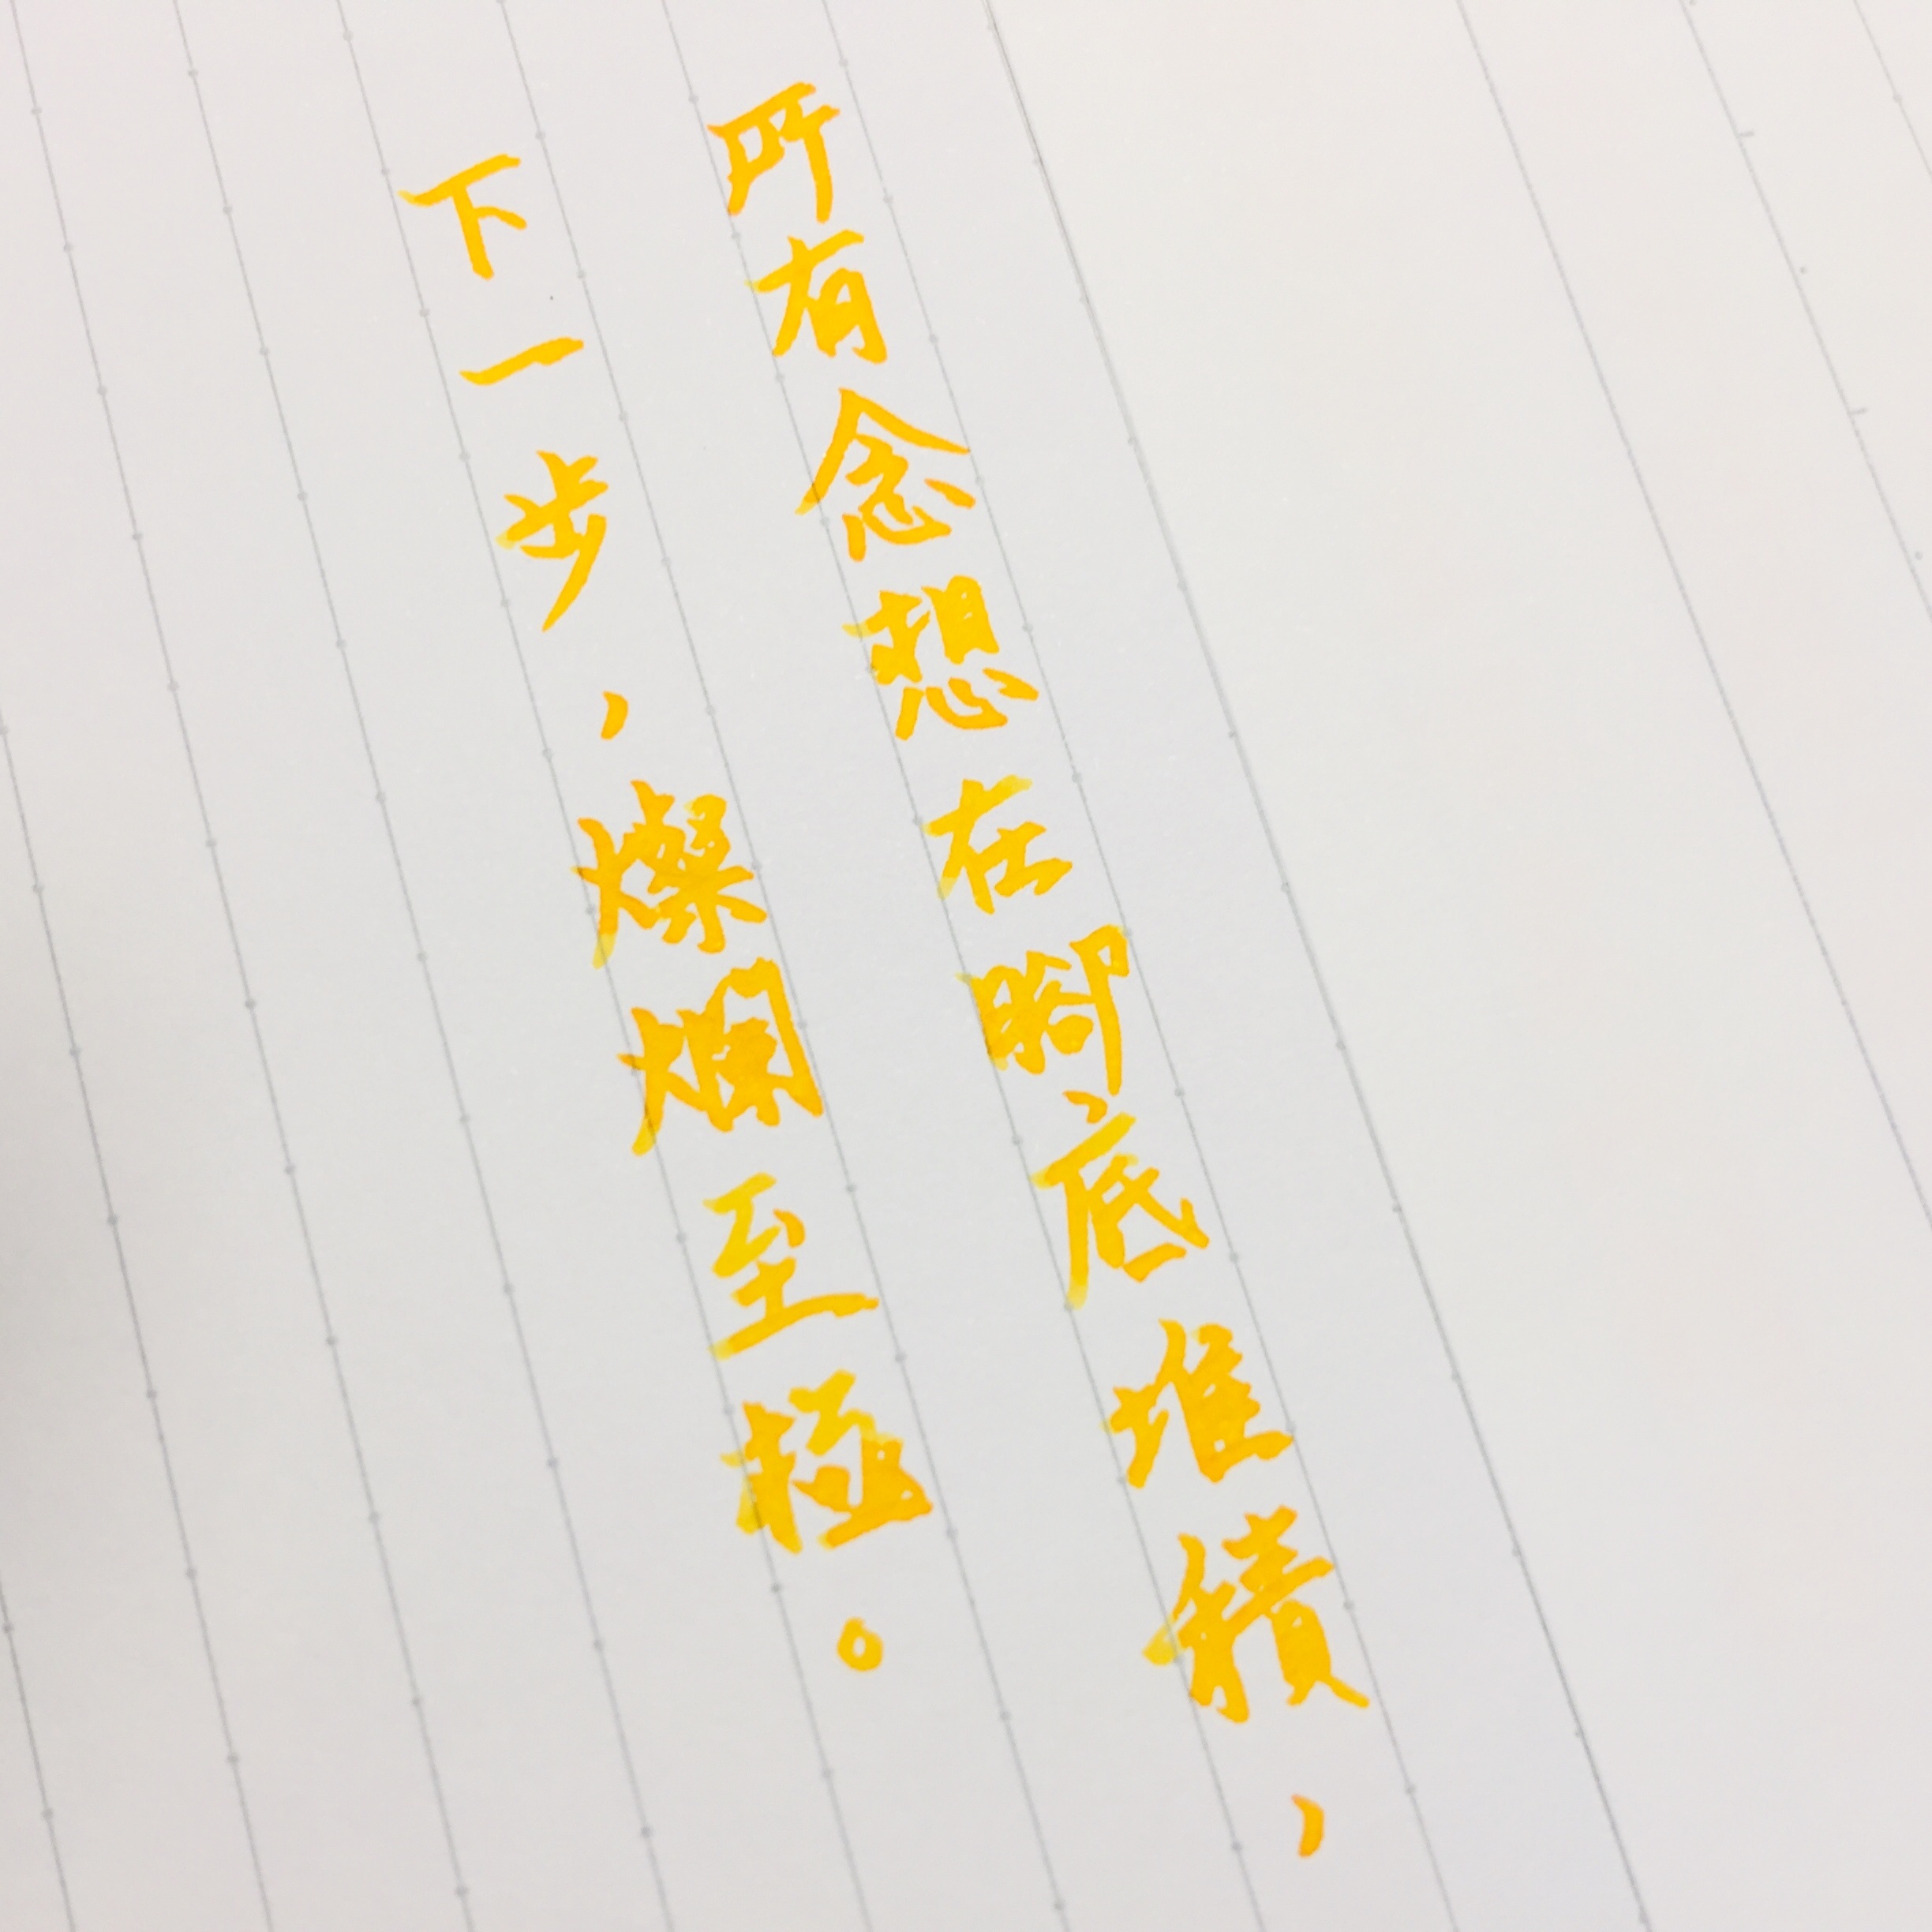 所有念想在腳底堆積，
下一步，燦爛至極。